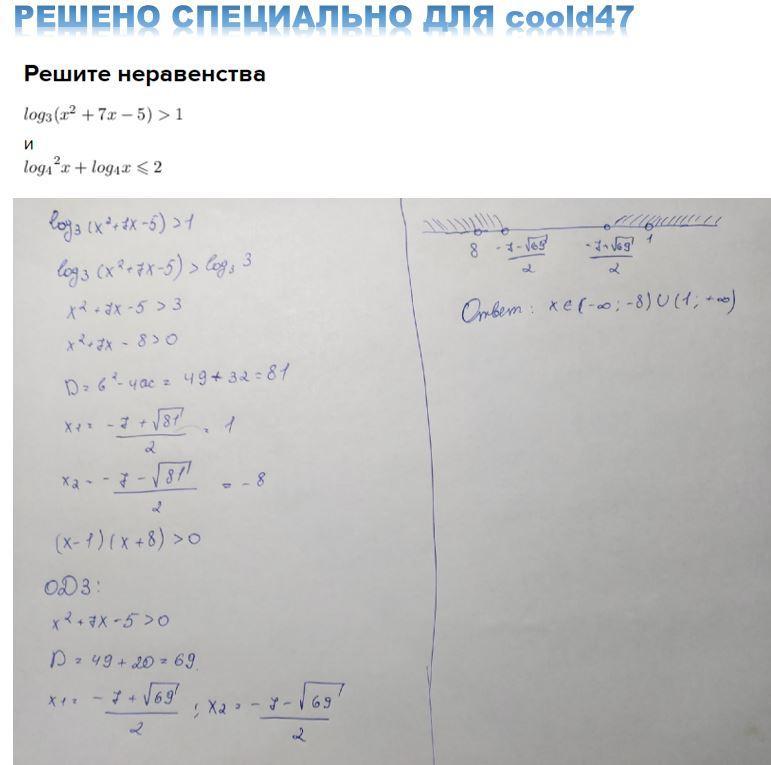 РЕШЕНО СПЕЦИАЛЬНО ДЛЯ coold47
Решите неравенства
log₃(x² + 7x − 5) > 1
и
log₄²x + log₄x ⩽ 2
log₃(x²+7x-5)>1
log₃(x²+7x-5)>log₃3
x²+7x-5>3
x²+7x-8>0
D=b²-4ac= 49+32=81
x₁= (-7+√81)/2 = 1
x₂= (-7-√81)/2 = -8
(x-1)(x+8)>0
ОДЗ:
x²+7x-5>0
D=49+20=69.
x₁= (-7+√69)/2 ; x₂= (-7-√69)/2
8 (-7-√69)/2 (-7+√69)/2 1
Ответ: x∈(-∞;-8)∪(1;+∞)